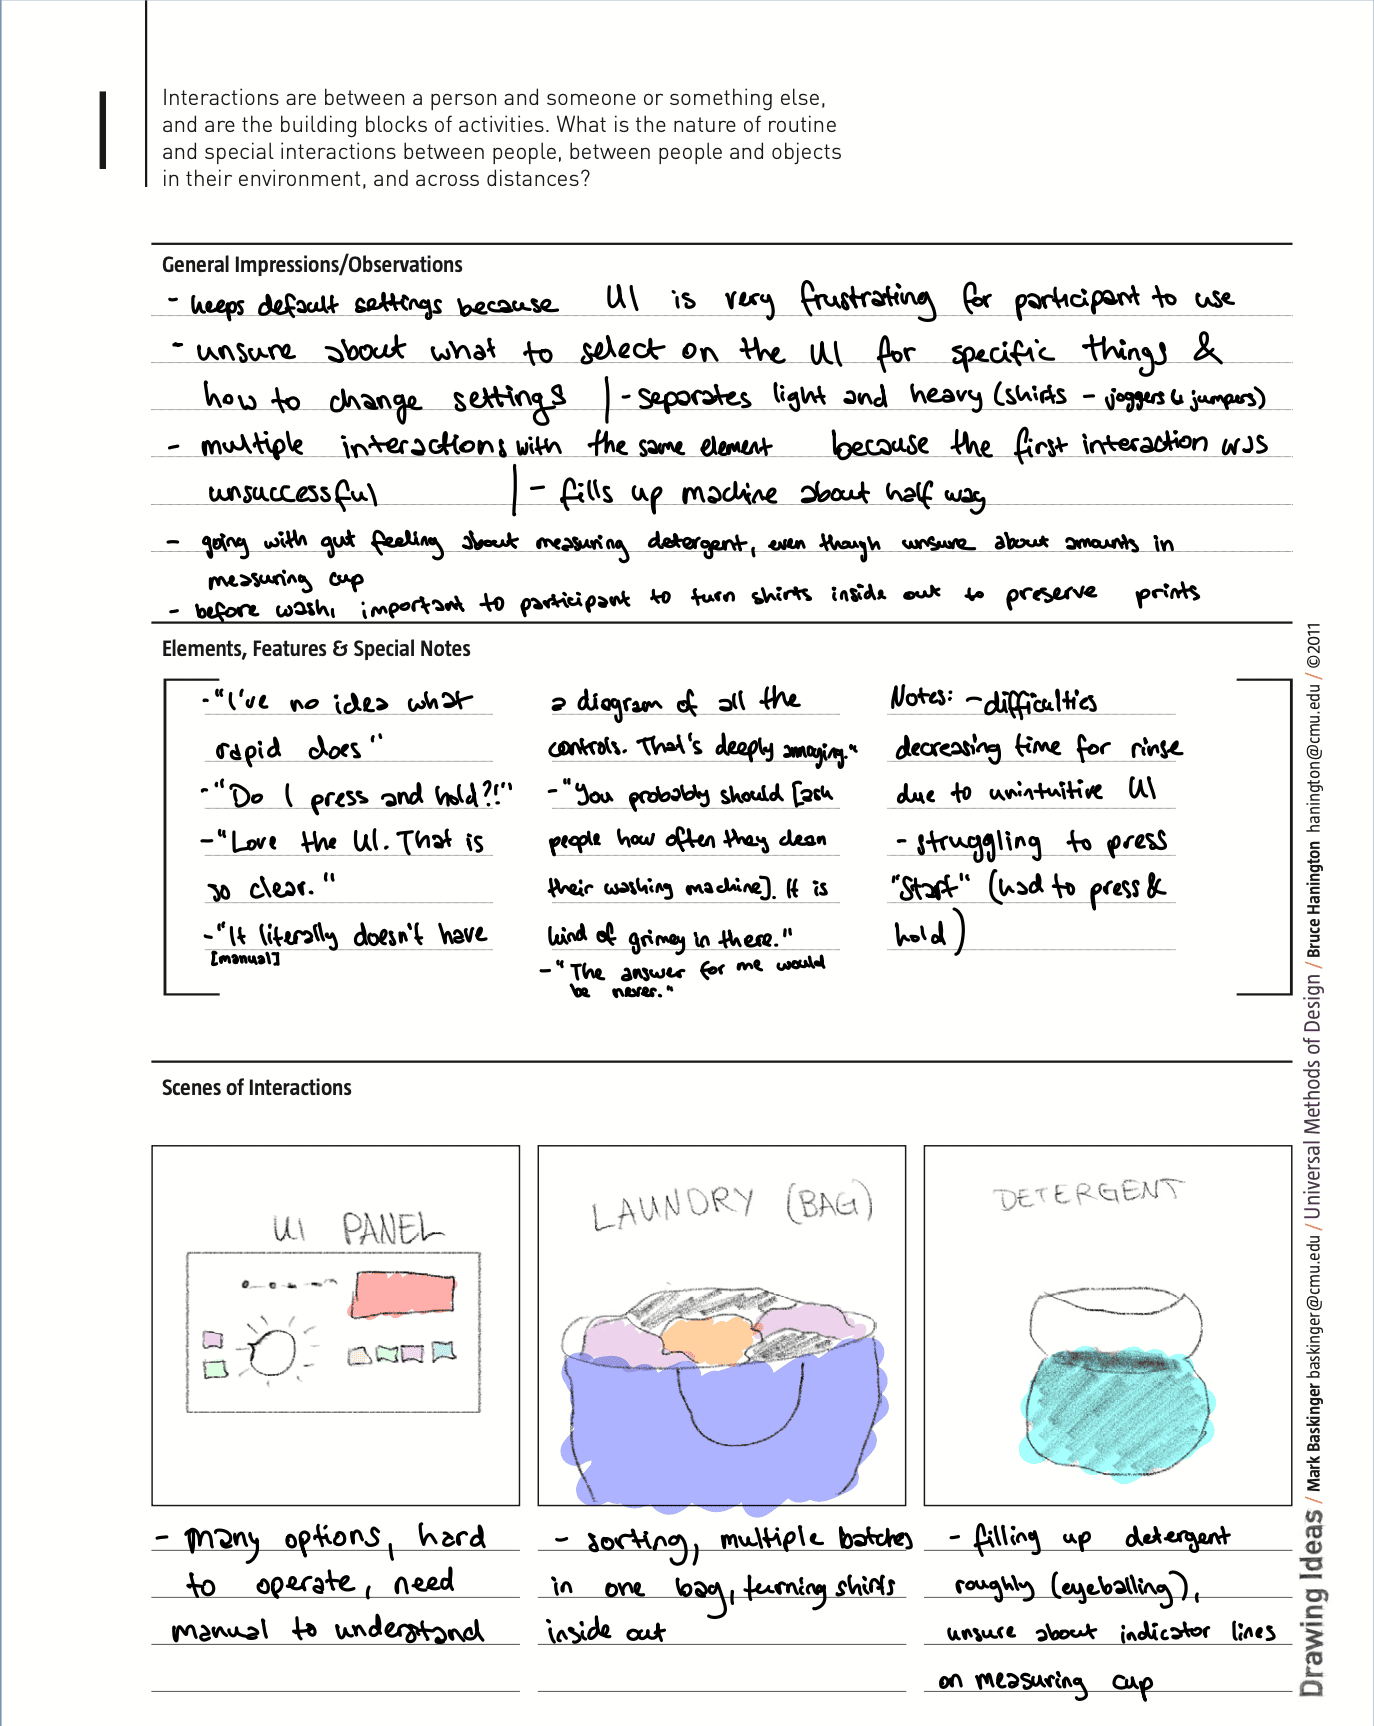 I
Interactions are between a person and someone or something else,
and are the building blocks of activities. What is the nature of routine
and special interactions between people, between people and objects
in their environment, and across distances?
General Impressions/Observations
- keeps default settings because UI is very frustrating for participant to use
- unsure about what to select on the UI for specific things &
how to change settings | - separates light and heavy (shirts - joggers & jumpers)
- multiple interactions with the same element because the first interaction was
unsuccessful | - fills up machine about half way
- going with gut feeling about measuring detergent, even though unsure about amounts in
measuring cup
- before wash, important to participant to turn shirts inside out to preserve prints
Elements, Features & Special Notes
- "I've no idea what
rapid does"
- "Do I press and hold?!"
- "Love the UI. That is
so clear."
- "It literally doesn't have
[manual]
a diagram of all the
controls. That's deeply annoying."
- "You probably should [ask
people how often they clean
their washing machine]. It is
kind of grimey in there."
- "The answer for me would
be never."
Notes: - difficulties
decreasing time for rinse
due to unintuitive UI
- struggling to press
"Start" (had to press &
hold)
Scenes of Interactions
UI PANEL
LAUNDRY (BAG)
DETERGENT
- many options, hard
to operate, need
manual to understand
- sorting, multiple batches
in one bag, turning shirts
inside out
- filling up detergent
roughly (eyeballing),
unsure about indicator lines
on measuring cup
Drawing Ideas / Mark Baskinger baskinger@cmu.edu / Universal Methods of Design / Bruce Hanington hanington@cmu.edu / ©2011